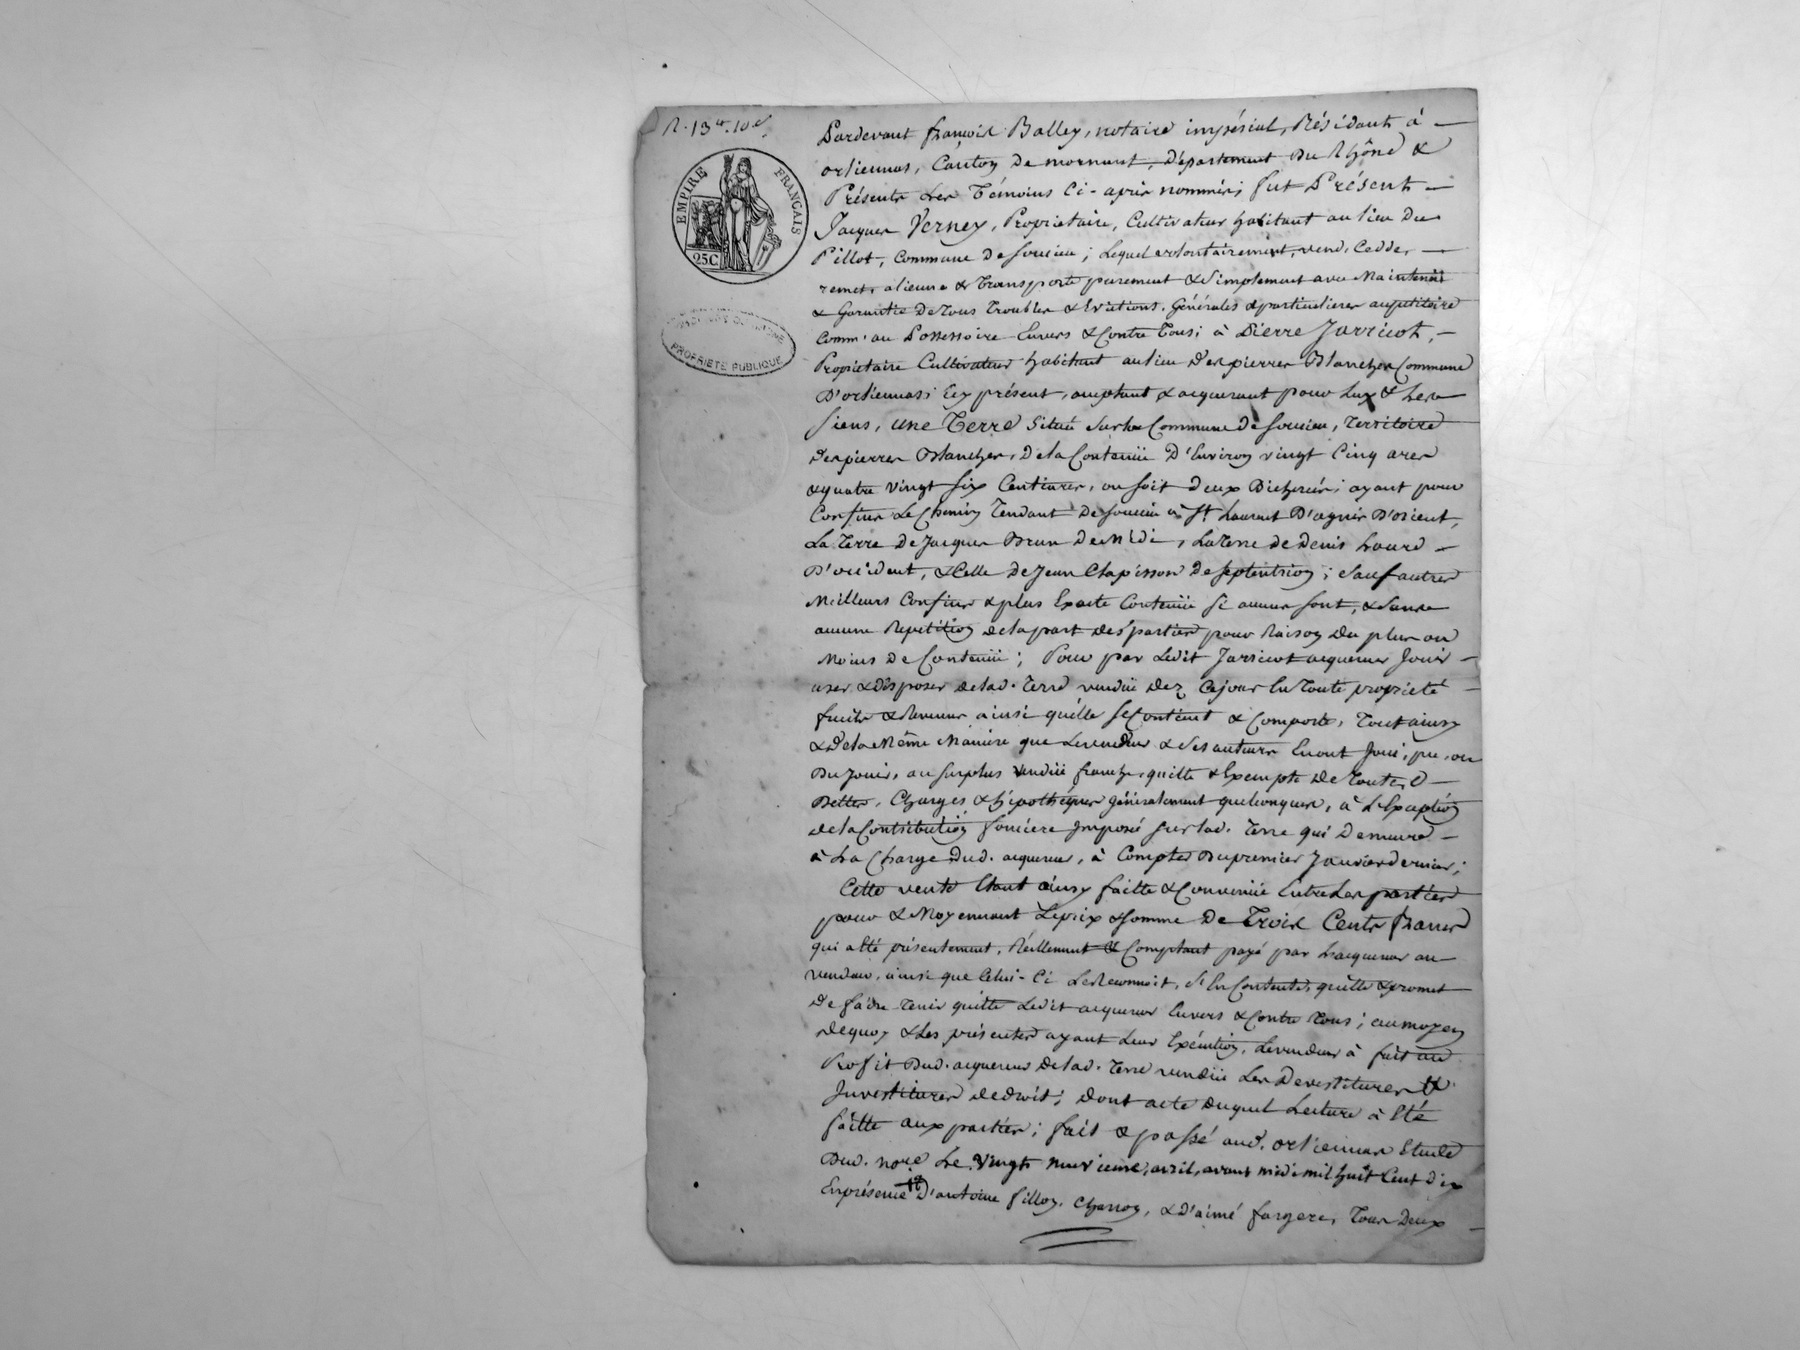 R. 13 fr. 10 c.
EMPIRE FRANÇAIS
25C
PROPRIÉTÉ PUBLIQUE
Pardevant françois Balley, notaire impérial, Résidant à
orliennas, Canton de mornant, département Du Rhône &
Présents Les Témoins Ci-après nommés; fut Présent
Jacques Verney, Propriétaire, Cultivateur habitant au lieu Du
Pillot, Commune De Soucieu; Lequel volontairement, vend, Cedde,
remet, alienne & Transporte purement & Simplement avec Maintenüe
& Garantie De Tous Troubles & Evictions, Générales & particulieres au petitoire
Comm'au Possessoire Envers & Contre Tous; à Pierre Jarricot,
Propriétaire Cultivateur habitant au lieu Des pierres Blanches Commune
D'orliennas; Icy présent, acceptant & acquerant pour Luy & Les
Siens, une Terre Située Sur la Commune De Soucieu, Territoire
Des pierres Blanches, De la Contenüe D'Environ vingt Cinq ares
& quatre vingt Six Centiares, ou Soit Deux Bicherées; ayant pour
Confins Le Chemin Tendant De Soucieu à St Laurent D'agnis D'orient,
La Terre De Jacques Brun De Midi, La Terre de Denis
D'occident, & Celle De Jean Chapisson De Septentrion; Sauf autres
Meilleurs Confins & plus Exacte Contenüe Si aucuns Sont, & Sans
aucune Repetition De la part Des parties pour Raison Du plus ou
Moins De Contenüe; Pour par Ledit Jarricot acquereur Jouir
user & disposer De lad. Terre vendüe Dez Ce jour En Toute propriété
fruits & Revenus ainsi qu'elle Se Contient & Comporte, Tout ainsy
& De la Même Maniere que Le vendeur & Ses auteurs En ont Joui, pu, ou
Du Jouir, au Surplus vendüe franche, quitte & Exempte De Toutes
Dettes, Charges & hipotheques généralement quelconques, à L'Exception
De la Contribution fonciere Imposé Sur lad. Terre qui Demeure
à La Charge Dud. acquereur, à Compter Du premier Janvier dernier;
Cette vente Etant ainsy faitte & Convenüe Entre Les parties
pour & Moyennant Le prix & Somme De Trois Cents francs
qui a Eté présentement, Réellement & Comptant payé par L'acquereur au
vendeur, ainsi que Celui-Ci Le Reconnoit, S'En Contente, quitte & promet
De faire Tenir quitte Ledit acquereur Envers & Contre Tous; au moyen
De quoy & Les présentes ayant Leur Exécution, Le vendeur à fait au
Profit Dud. acquereur De lad. Terre vendüe Les Devestitures &
Investitures de droit; Dont acte Duquel Lecture à Eté
faitte aux parties; fait & passé aud. orliennas Etude
Dud. nore Le vingt neuvieme, avril, avant midi mil huit Cent Dix
En présence D'antoine fillon, Charron, & D'aimé fargere, Tous Deux